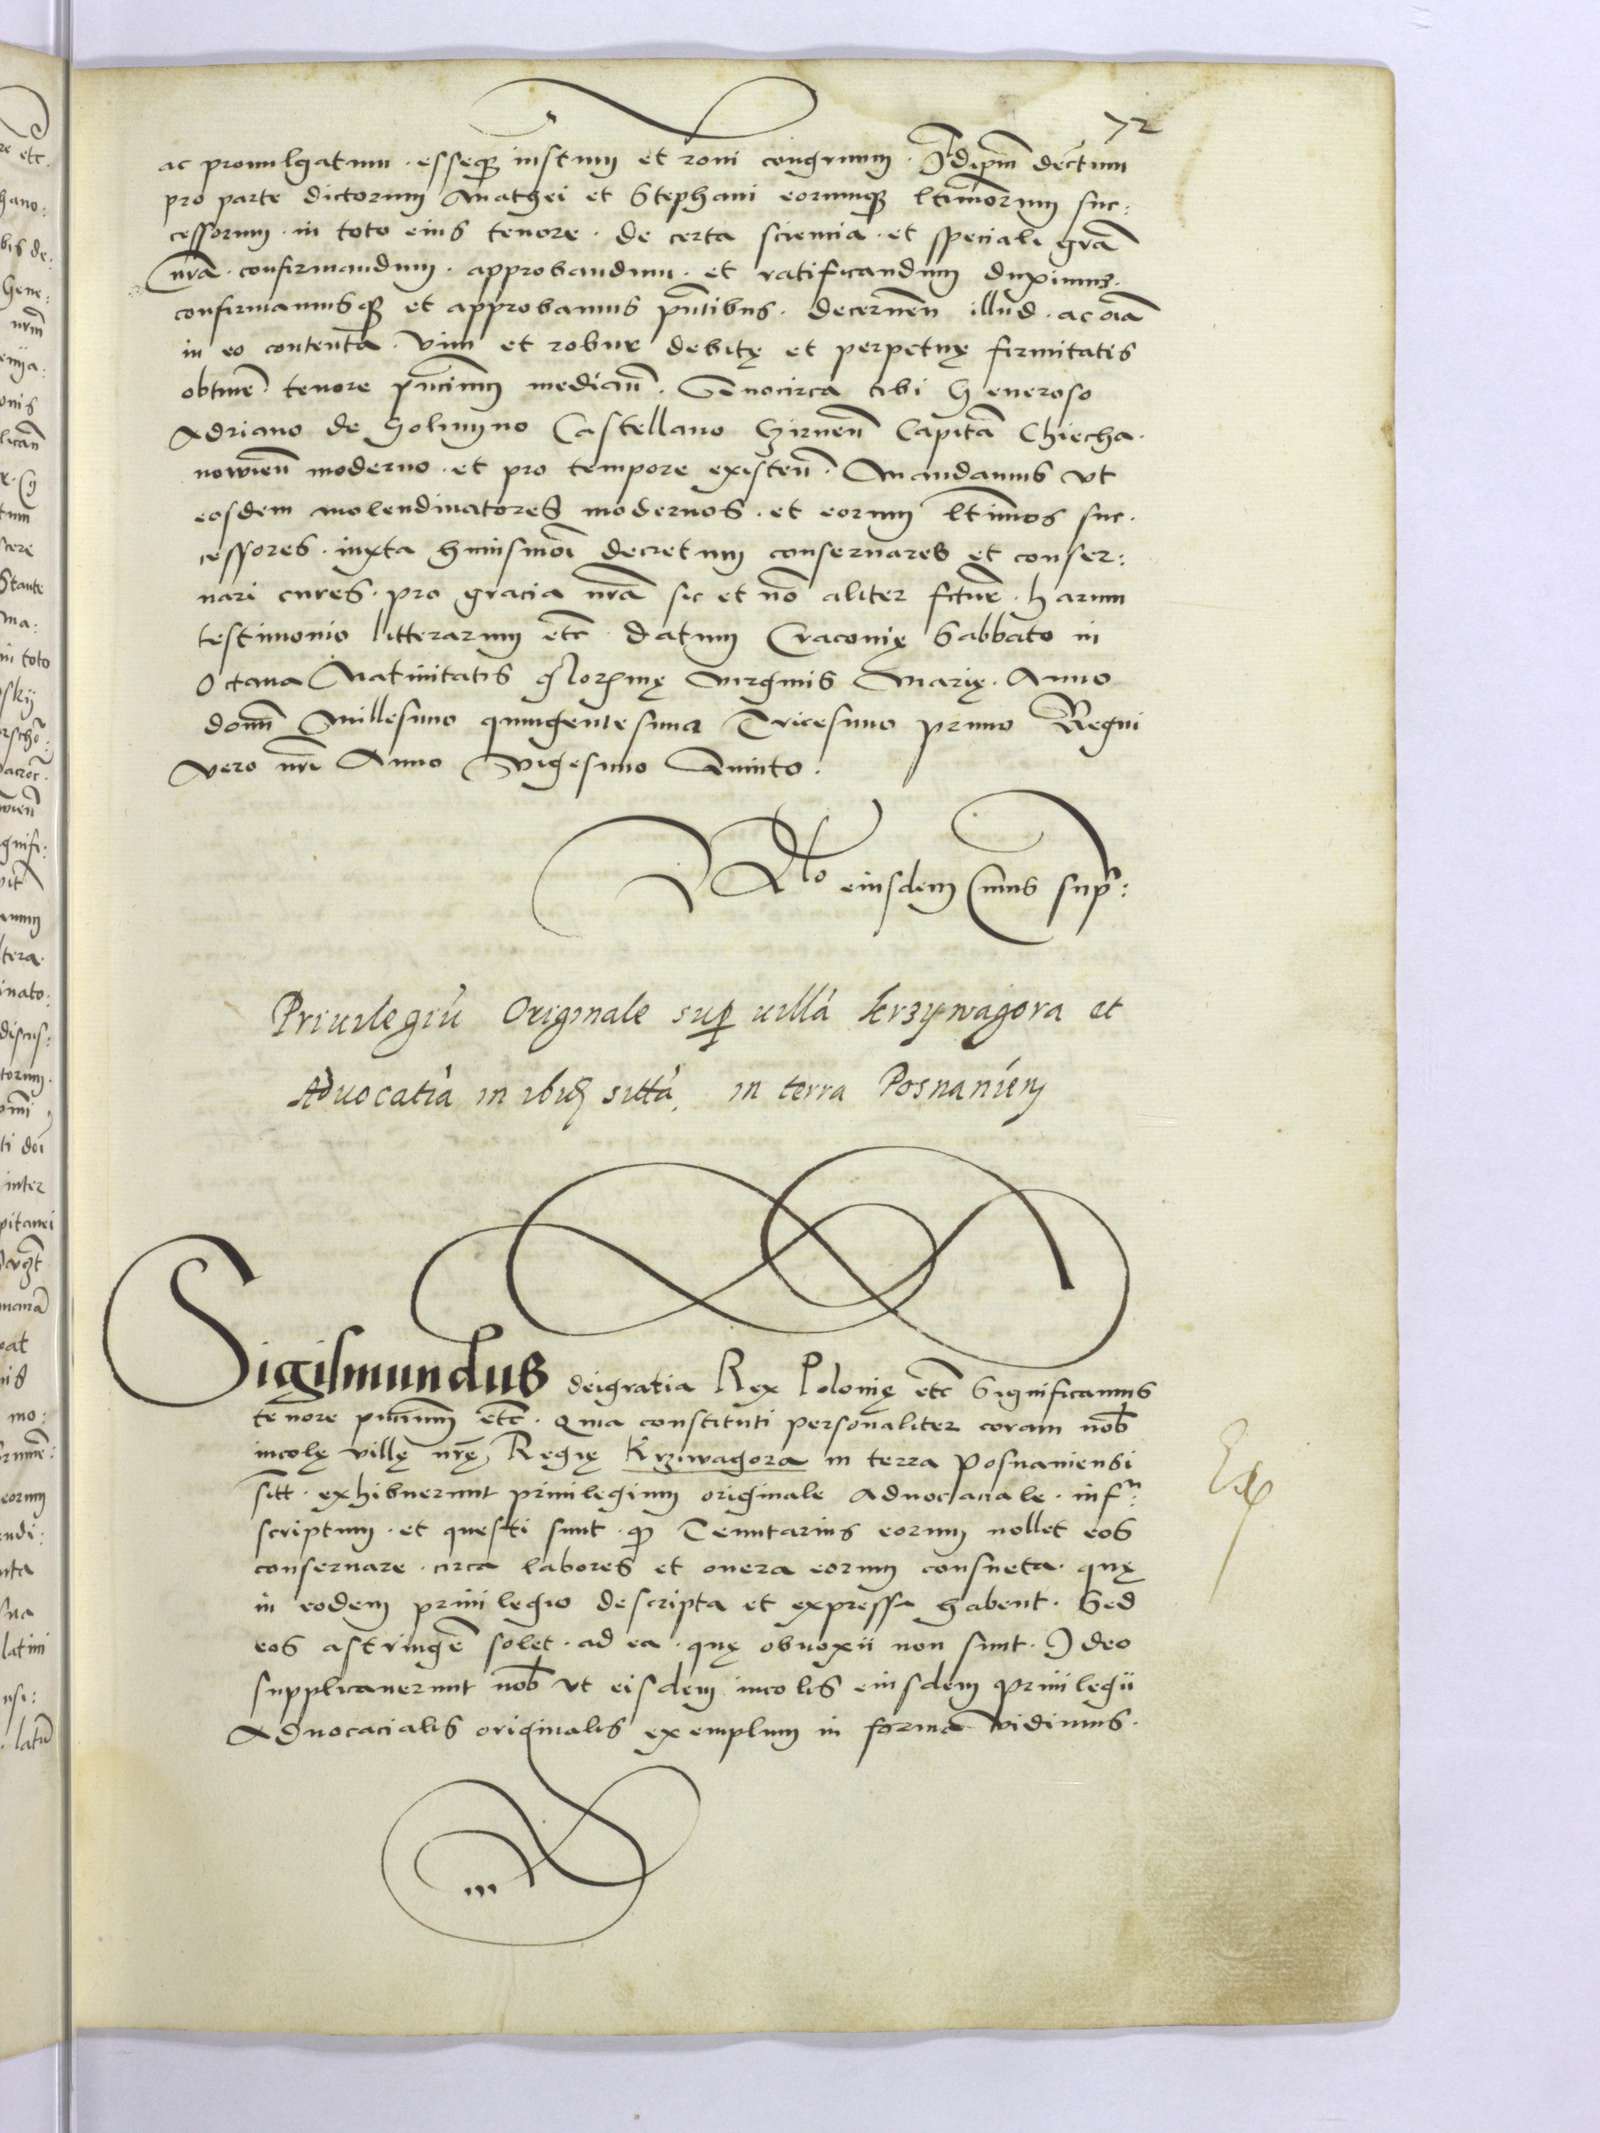 72
ac promulgatum · esseq3 iustum et roni congruum · Idipm̄ decr̄tum
pro parte dictorum Mathei et Stephani eorumq3 ltimorum suc:
cessorum · in toto eius tenore · de certa sciencia · et speciali gr̄a
nr̄a · confirmandum · approbandum · et ratificandum duximus ·
confirmamusq3 et approbamus p̄ntibus · decernen̄ illud · ac oīa
in eo contenta · vim et robur debitę et perpetuę firmitatis
obtiner̄e · tenore p̄ncium median̄ · Quocirca tibi Generoso
Adriano de Golmyno Castellano Wirnen̄ Capitā Chiecha ·
nowien̄ moderno · et pro tempore existen̄ · Mandamus vt
eosdem molendinatores modernos · et eorum ltimos suc ·
cessores · iuxta huiusmōi decretum conseruares et conser:
uari cures · pro gracia nr̄a sic et nō aliter fctur̄ · harum
testimonio litterarum etc̄ · datum Cracovię Sabbato in
Octaua Natiuitatis glor̄mę virginis Marię · Anno
domī Millesimo quingentesimo Tricesimo primo Regni
vero nr̄i Anno vigesimo Quinto ·
Rlo eiusdem Cuius sup̄:
Priuilegiū Originale sup uillā krzywagora et
Aduocatiā in ibid sittā, in terra Posnanien
Sigismundus deigratia Rex Polonię etc̄ Significamus
tenore p̄ncium etc̄ · Quia constituti personaliter coram nob̄
incolę villę nr̄ę Regię Krziwagora in terra Posnaniensi
sitt · exhibuerunt priuilegium originale aduocaciale · infrā:
scriptum · et questi sunt · q̄ Tenutarius eorum nollet eos
conseruare · circa labores et onera eorum consueta · quę
in eodem priuilegio descripta et expressa habent · Sed
eos astringer̄e solet · ad ea · quę obnoxii non sunt · Ideo
supplicauerunt nob̄ vt eisdem incolis eiusdem priuilegii
Aduocacialis originalis exemplum in forma vidimus ·